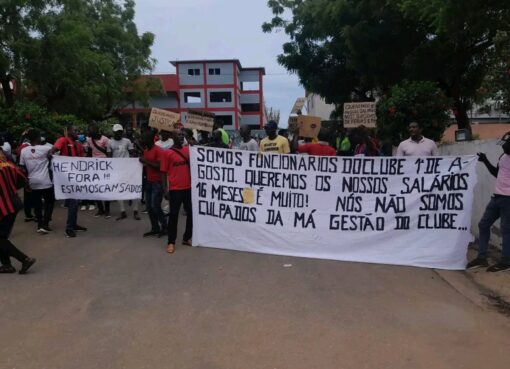 HENDRICK
FORA!!!
ESTAMOS CAMSADOS
SOMOS FUNCIONÁRIOS DO CLUBE 1º DE A,
GOSTO. QUEREMOS OS NOSSOS SALÁRIOS
16 MESES É MUITO! NÓS NÃO SOMOS
CULPADOS DA MÁ GESTÃO DO CLUBE...
QUEREMOS
JUSTIÇA
QUEREMOS